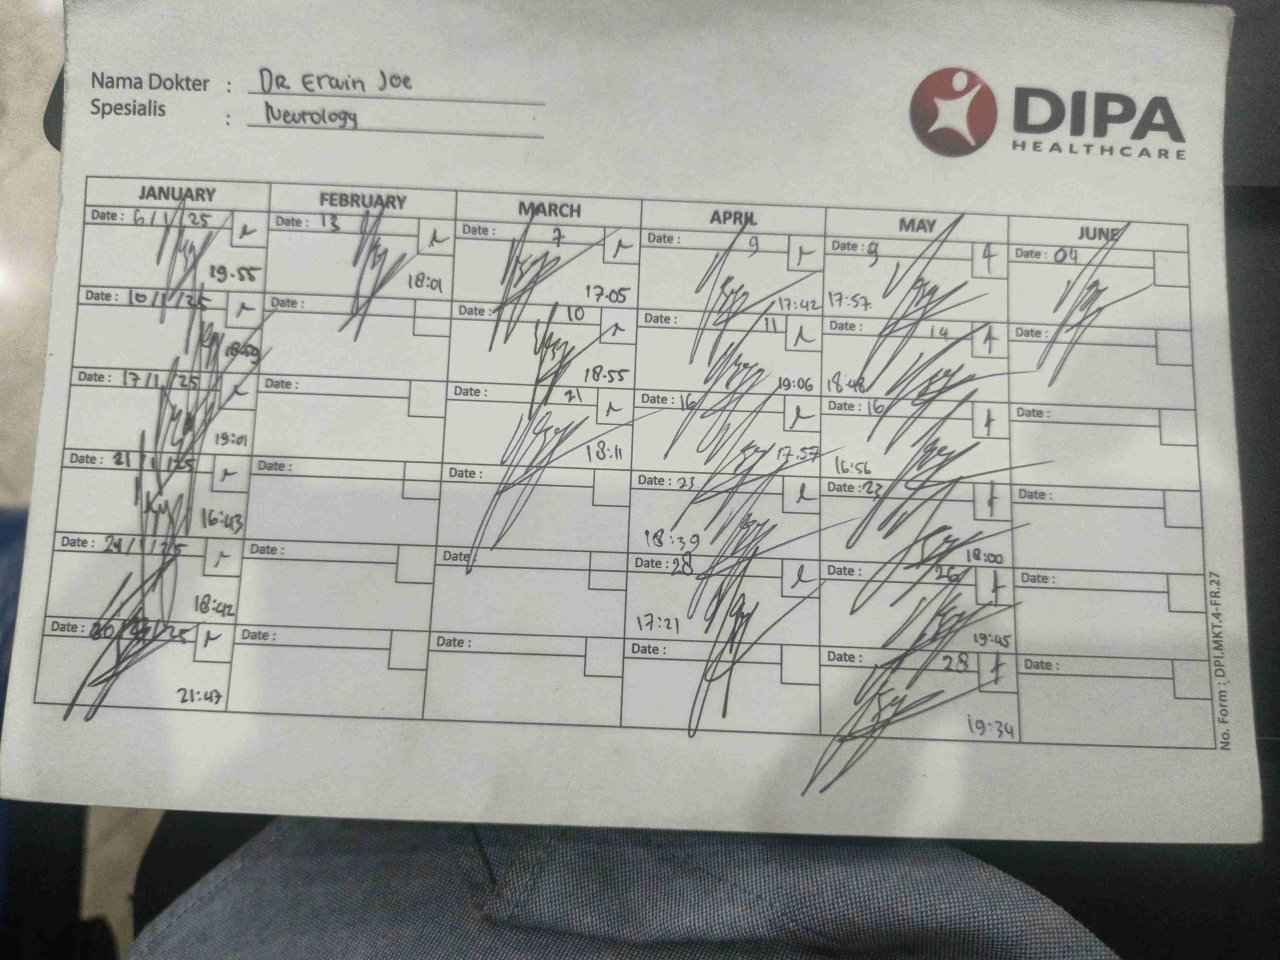 Nama Dokter : DR Erwin Joe
Spesialis : Neurology
DIPA
HEALTHCARE
JANUARY FEBRUARY MARCH APRIL MAY JUNE
Date : 6/1/25 Date : 13 Date : 7 Date : 9 Date : 9 Date : 04
19.55 18:01 17.05 17:42 17:57
Date : 10/1/25 Date : Date : 10 Date : 11 Date : 14 Date :
18.55 19:06 18:48
Date : 17/1/25 Date : Date : 21 Date : 16 Date : 16 Date :
19:01 18:11 17.57 16:56
Date : 21/1/25 Date : Date : Date : 23 Date : 23 Date :
16:43 18:39 18:00
Date : 24/1/25 Date : Date Date : 28 Date : 26 Date :
18:42 17:21 19:45
Date : Date : Date : Date : Date : 28 Date :
21:47 19:34
No. Form : DPI.MKT.4-FR.27